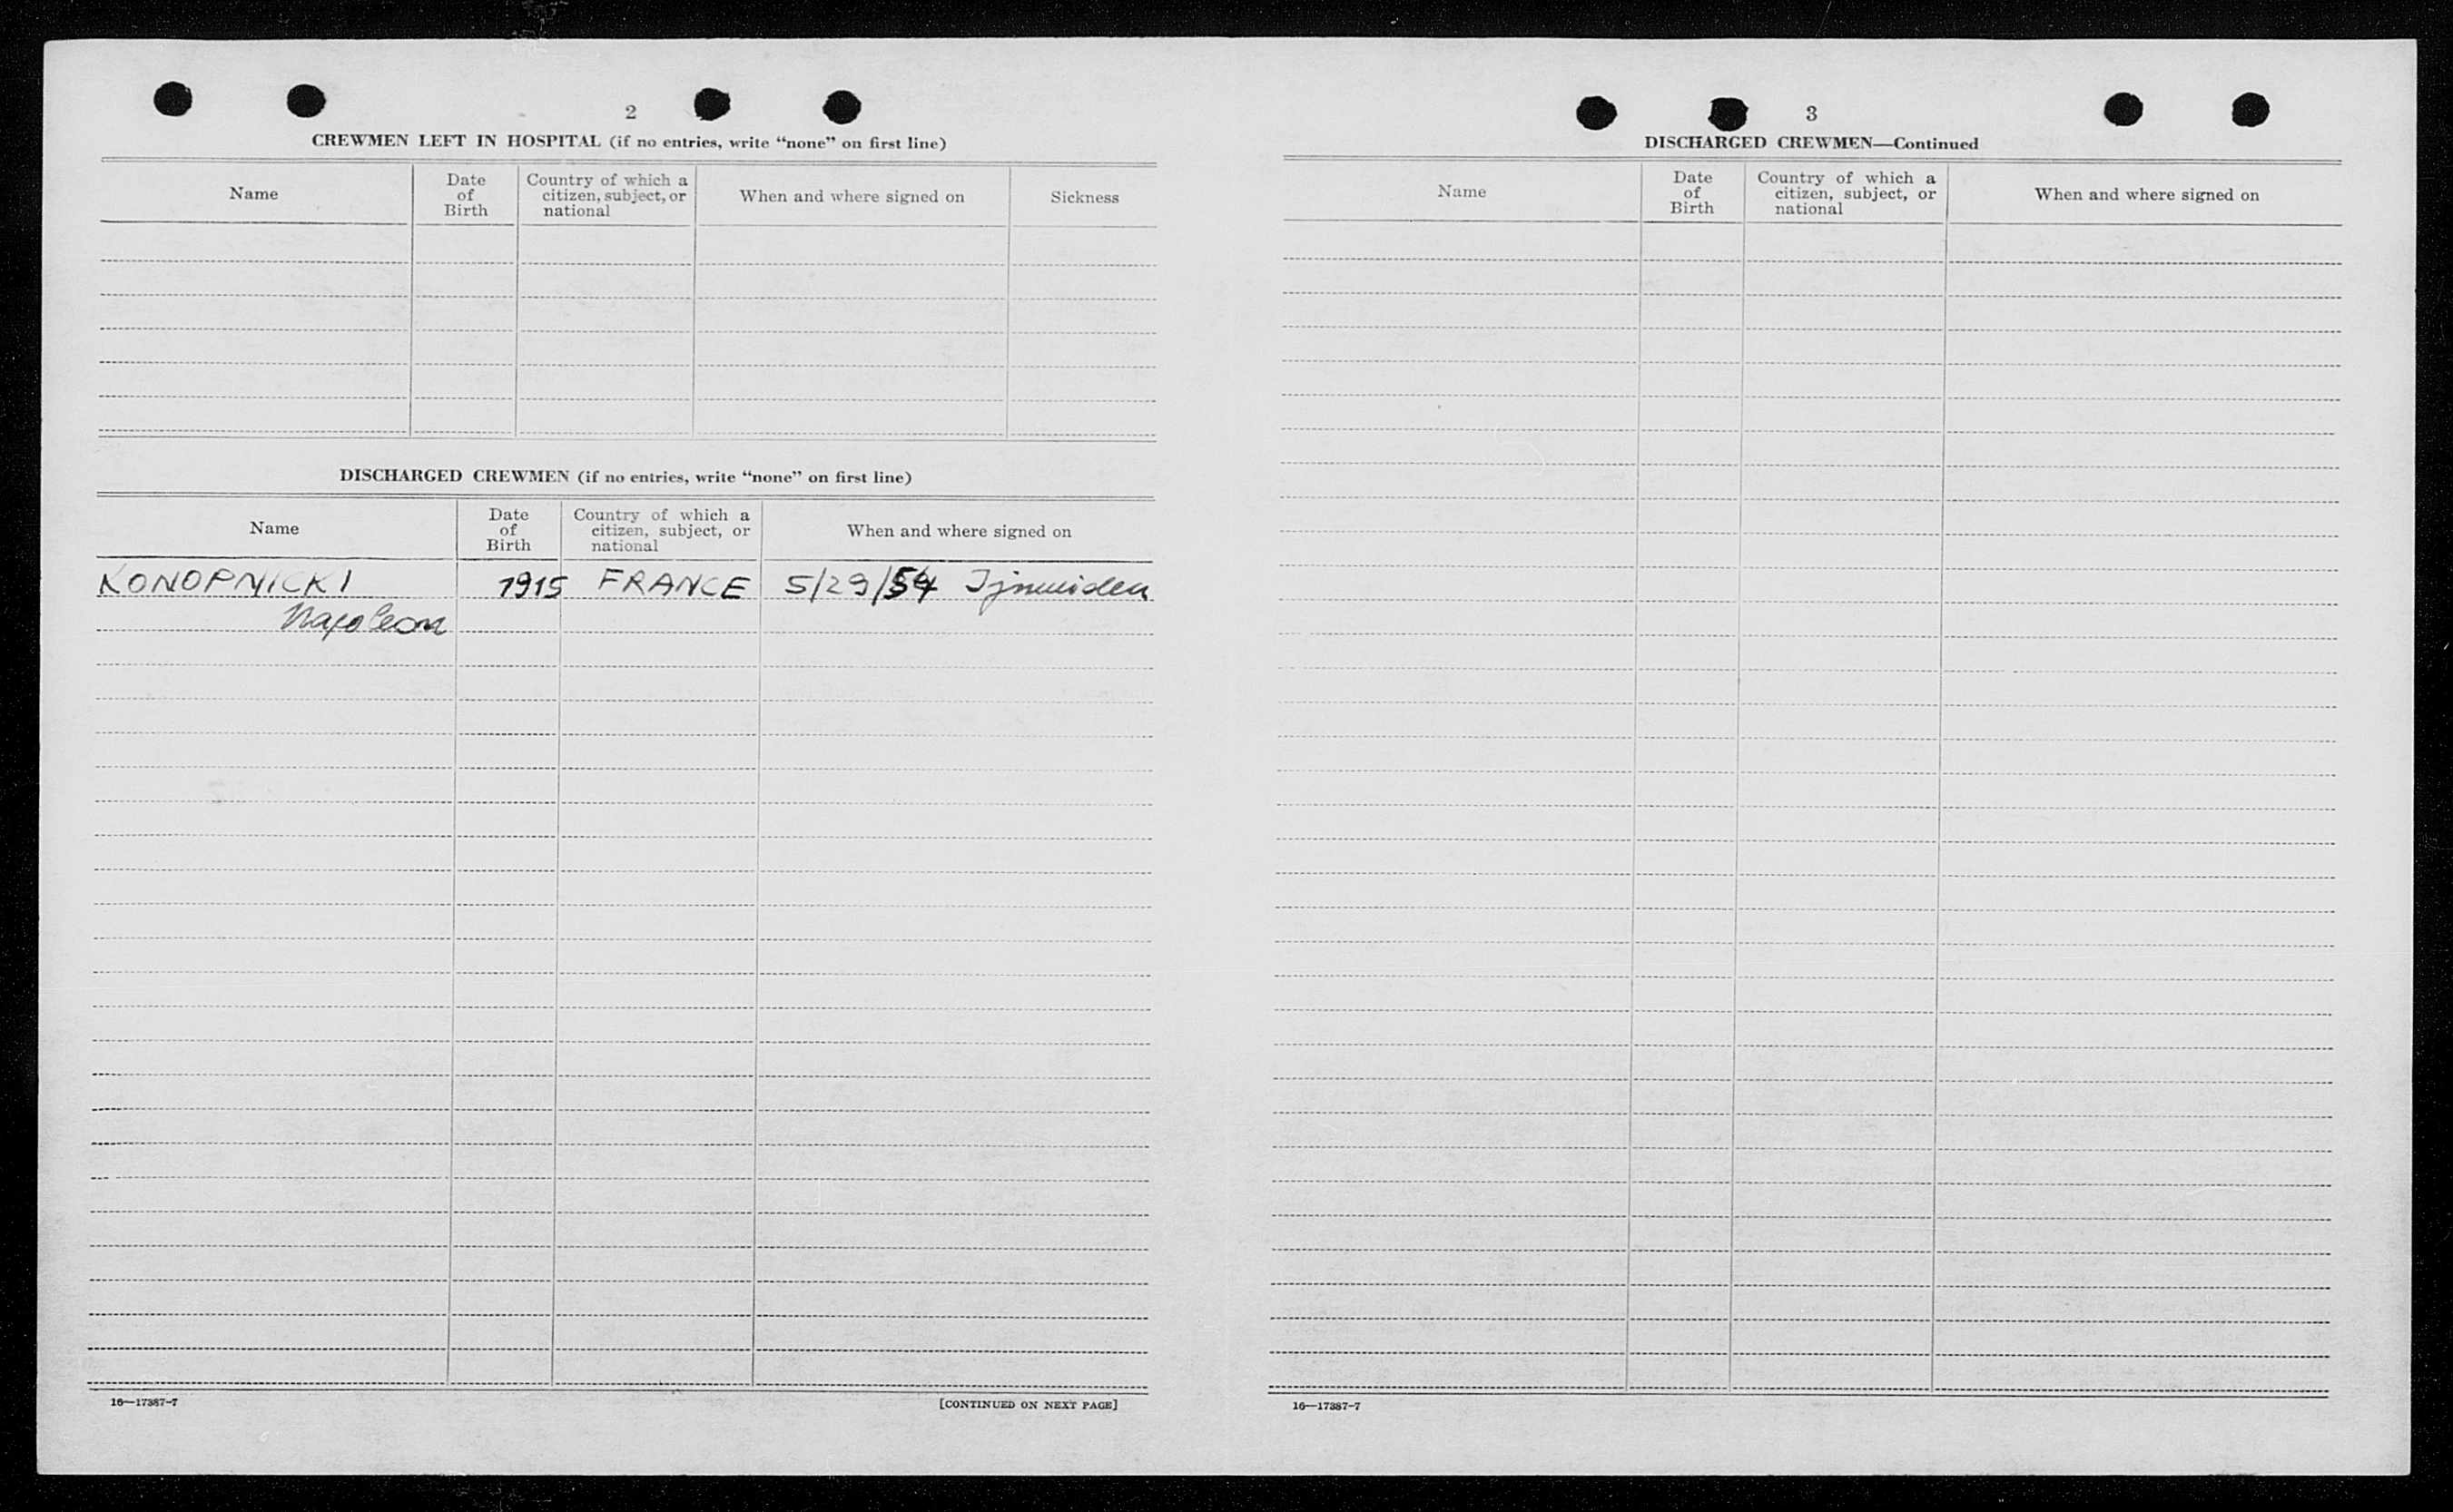 2
CREWMEN LEFT IN HOSPITAL (if no entries, write “none” on first line)
Name
Date of Birth
Country of which a citizen, subject, or national
When and where signed on
Sickness
DISCHARGED CREWMEN (if no entries, write “none” on first line)
Name
Date of Birth
Country of which a citizen, subject, or national
When and where signed on
KONOPNICKI 1915 FRANCE 5/29/54 Ijmuiden
Napoleon
16—17387-7
[CONTINUED ON NEXT PAGE]
3
DISCHARGED CREWMEN—Continued
Name
Date of Birth
Country of which a citizen, subject, or national
When and where signed on
16—17387-7